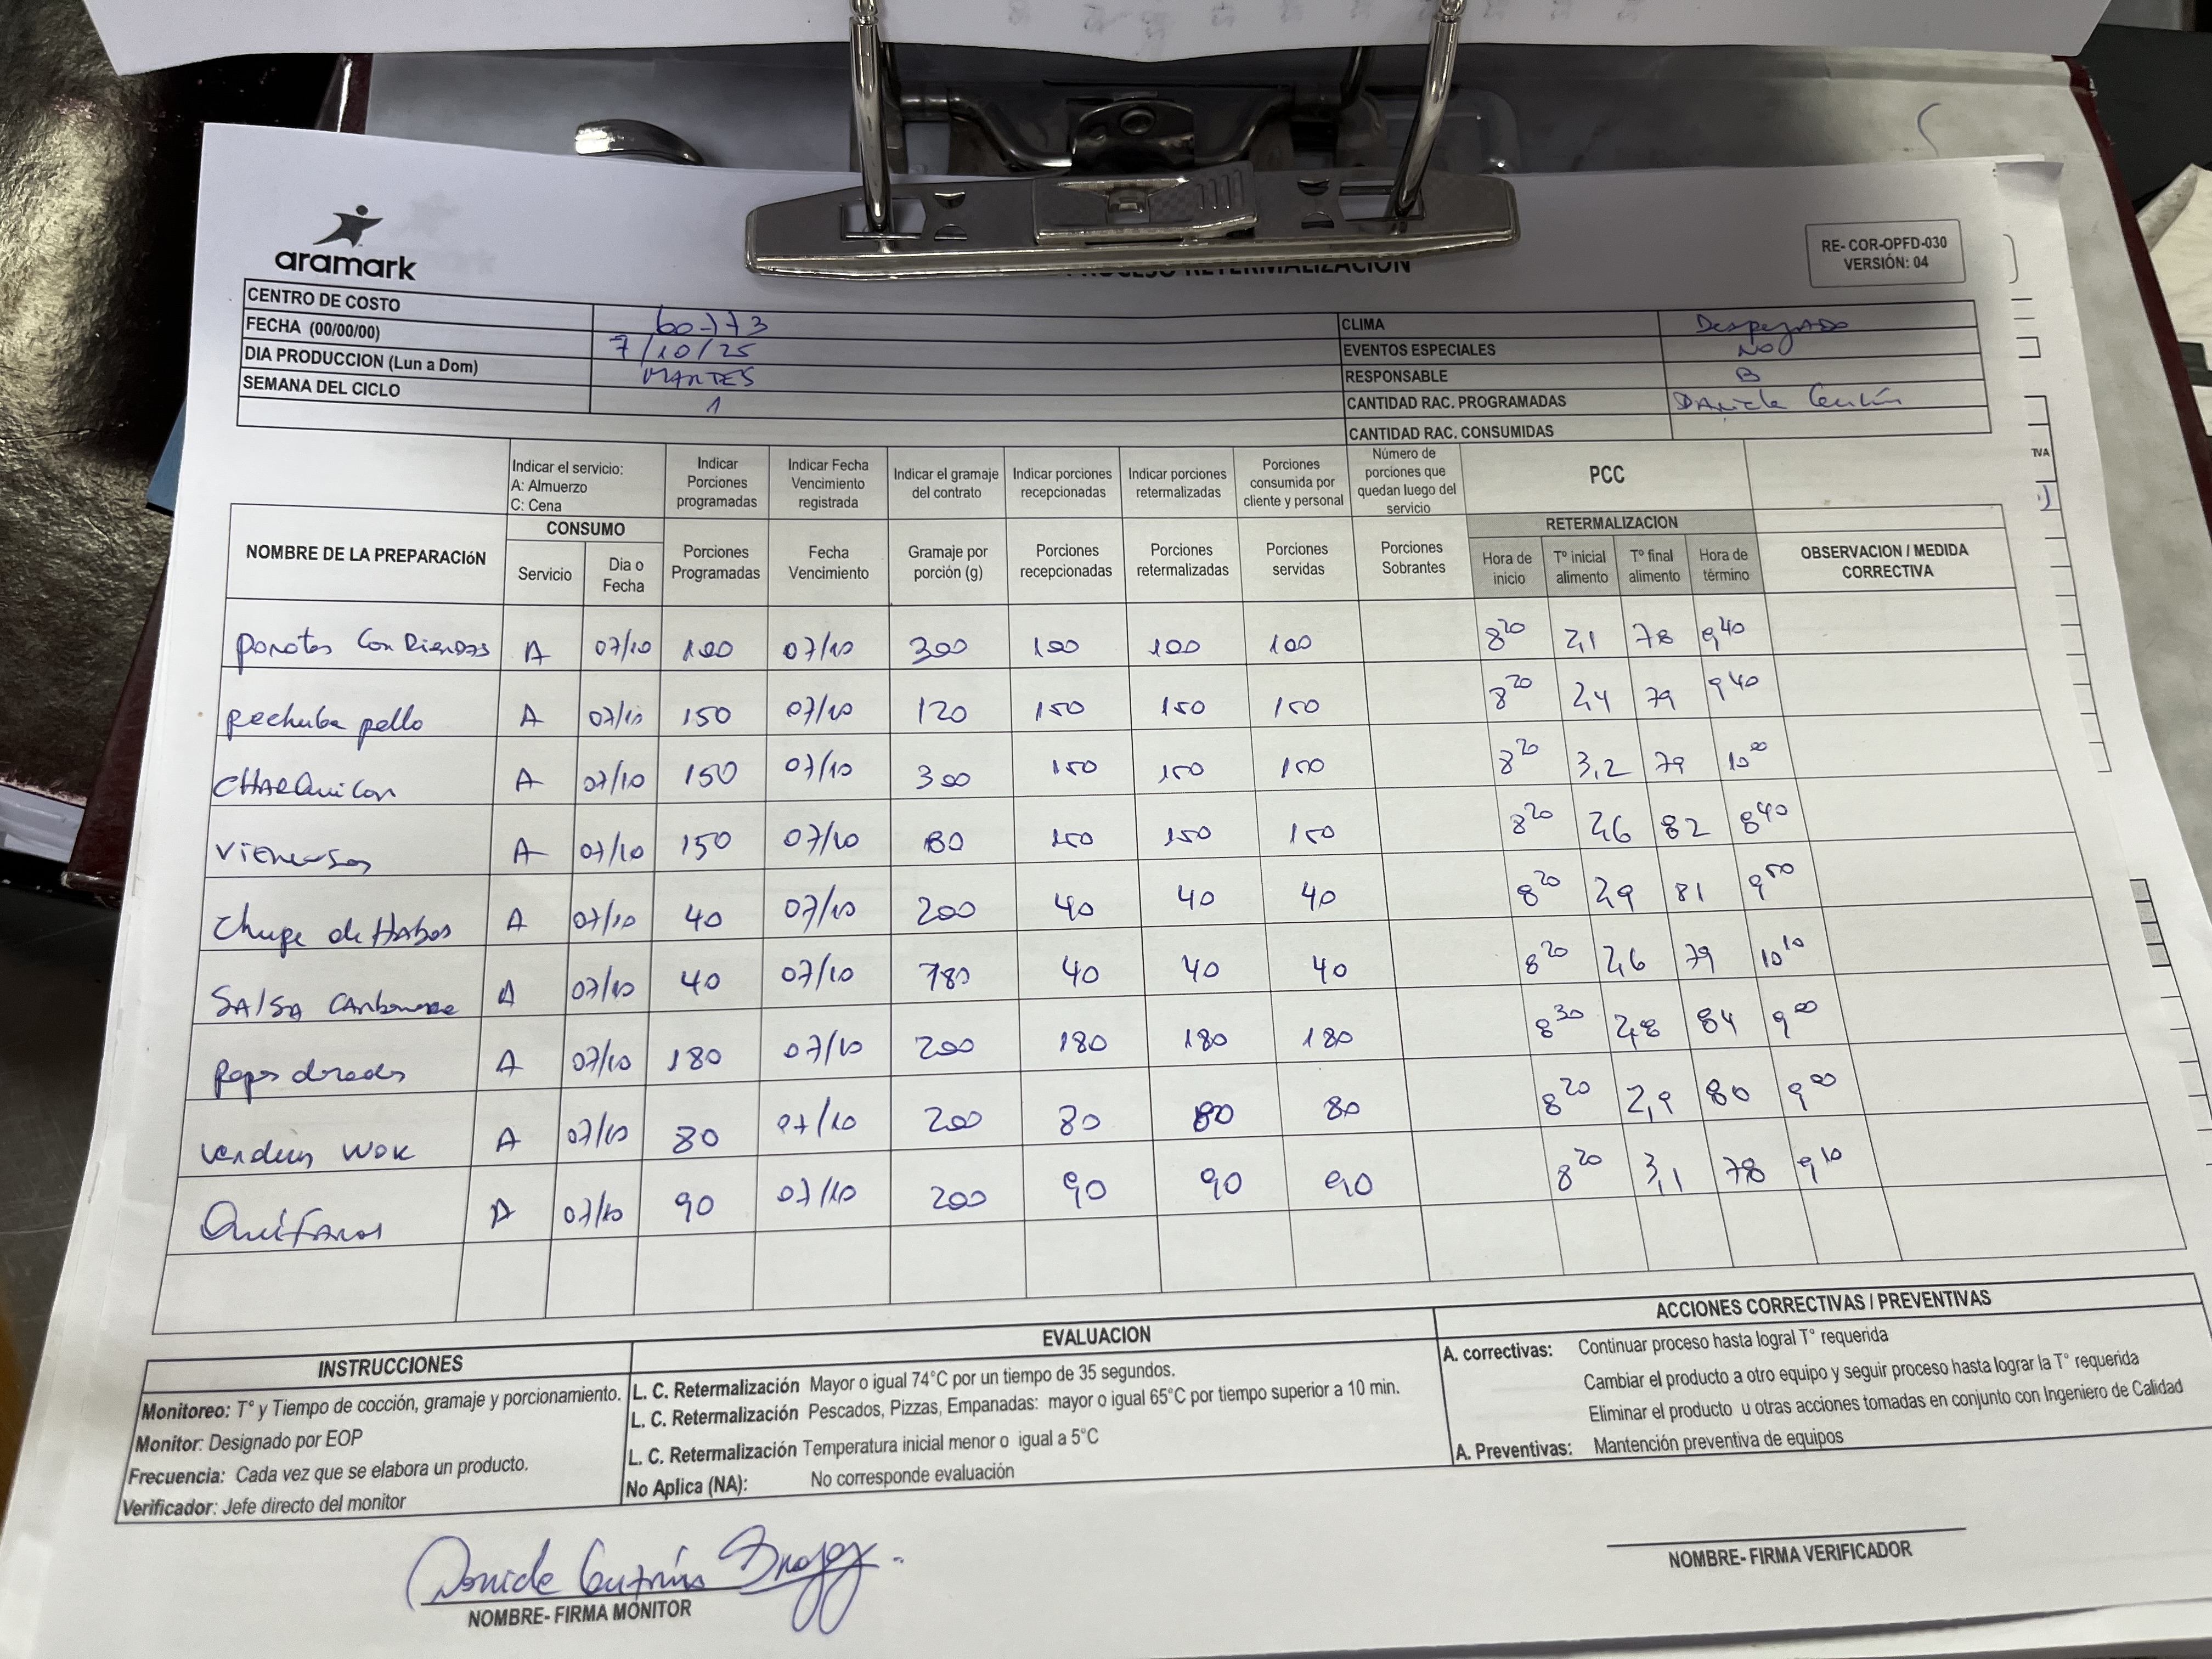 aramark
PROCESO RETERMALIZACION
RE- COR-OPFD-030
VERSIÓN: 04
CENTRO DE COSTO 60-773
FECHA (00/00/00) 7/10/25
DIA PRODUCCION (Lun a Dom) MARTES
SEMANA DEL CICLO 1
CLIMA Despejado
EVENTOS ESPECIALES NO
RESPONSABLE B
CANTIDAD RAC. PROGRAMADAS
CANTIDAD RAC. CONSUMIDAS
Indicar el servicio:
A: Almuerzo
C: Cena
Indicar Porciones programadas
Indicar Fecha Vencimiento registrada
Indicar el gramaje del contrato
Indicar porciones recepcionadas
Indicar porciones retermalizadas
Porciones consumida por cliente y personal
Número de porciones que quedan luego del servicio
PCC
NOMBRE DE LA PREPARACIóN
CONSUMO
Servicio
Dia o Fecha
Porciones Programadas
Fecha Vencimiento
Gramaje por porción (g)
Porciones recepcionadas
Porciones retermalizadas
Porciones servidas
Porciones Sobrantes
RETERMALIZACION
Hora de inicio
Tº inicial alimento
Tº final alimento
Hora de término
OBSERVACION / MEDIDA CORRECTIVA
porotos Con Riendas A 07/10 100 07/10 300 100 100 100 8 20 2,1 78 9 40
pechuba pollo A 07/10 150 07/10 120 150 150 150 8 20 2,4 79 9 40
CHARQuiCan A 07/10 150 07/10 300 150 150 150 8 20 3,2 79 10 00
Vienesas A 07/10 150 07/10 80 150 150 150 8 20 2,6 82 8 40
Chupe de Habas A 07/10 40 07/10 200 40 40 40 8 20 2,9 81 9 50
SAlSA CArbonara A 07/10 40 07/10 180 40 40 40 8 20 2,6 79 10 10
papas doradas A 07/10 180 07/10 200 180 180 180 8 30 2,8 84 9 00
Verduras WOK A 07/10 80 07/10 200 80 80 80 8 20 2,9 80 9 00
QuiFAros A 07/10 90 07/10 200 90 90 90 8 20 3,1 78 9 10
INSTRUCCIONES
Monitoreo: T° y Tiempo de cocción, gramaje y porcionamiento.
Monitor: Designado por EOP
Frecuencia: Cada vez que se elabora un producto.
Verificador: Jefe directo del monitor
EVALUACION
L. C. Retermalización Mayor o igual 74°C por un tiempo de 35 segundos.
L. C. Retermalización Pescados, Pizzas, Empanadas: mayor o igual 65°C por tiempo superior a 10 min.
L. C. Retermalización Temperatura inicial menor o igual a 5°C
No Aplica (NA): No corresponde evaluación
ACCIONES CORRECTIVAS / PREVENTIVAS
A. correctivas: Continuar proceso hasta logral T° requerida
Cambiar el producto a otro equipo y seguir proceso hasta lograr la T° requerida
Eliminar el producto u otras acciones tomadas en conjunto con Ingeniero de Calidad
A. Preventivas: Mantención preventiva de equipos
NOMBRE- FIRMA MONITOR
NOMBRE- FIRMA VERIFICADOR
TVA